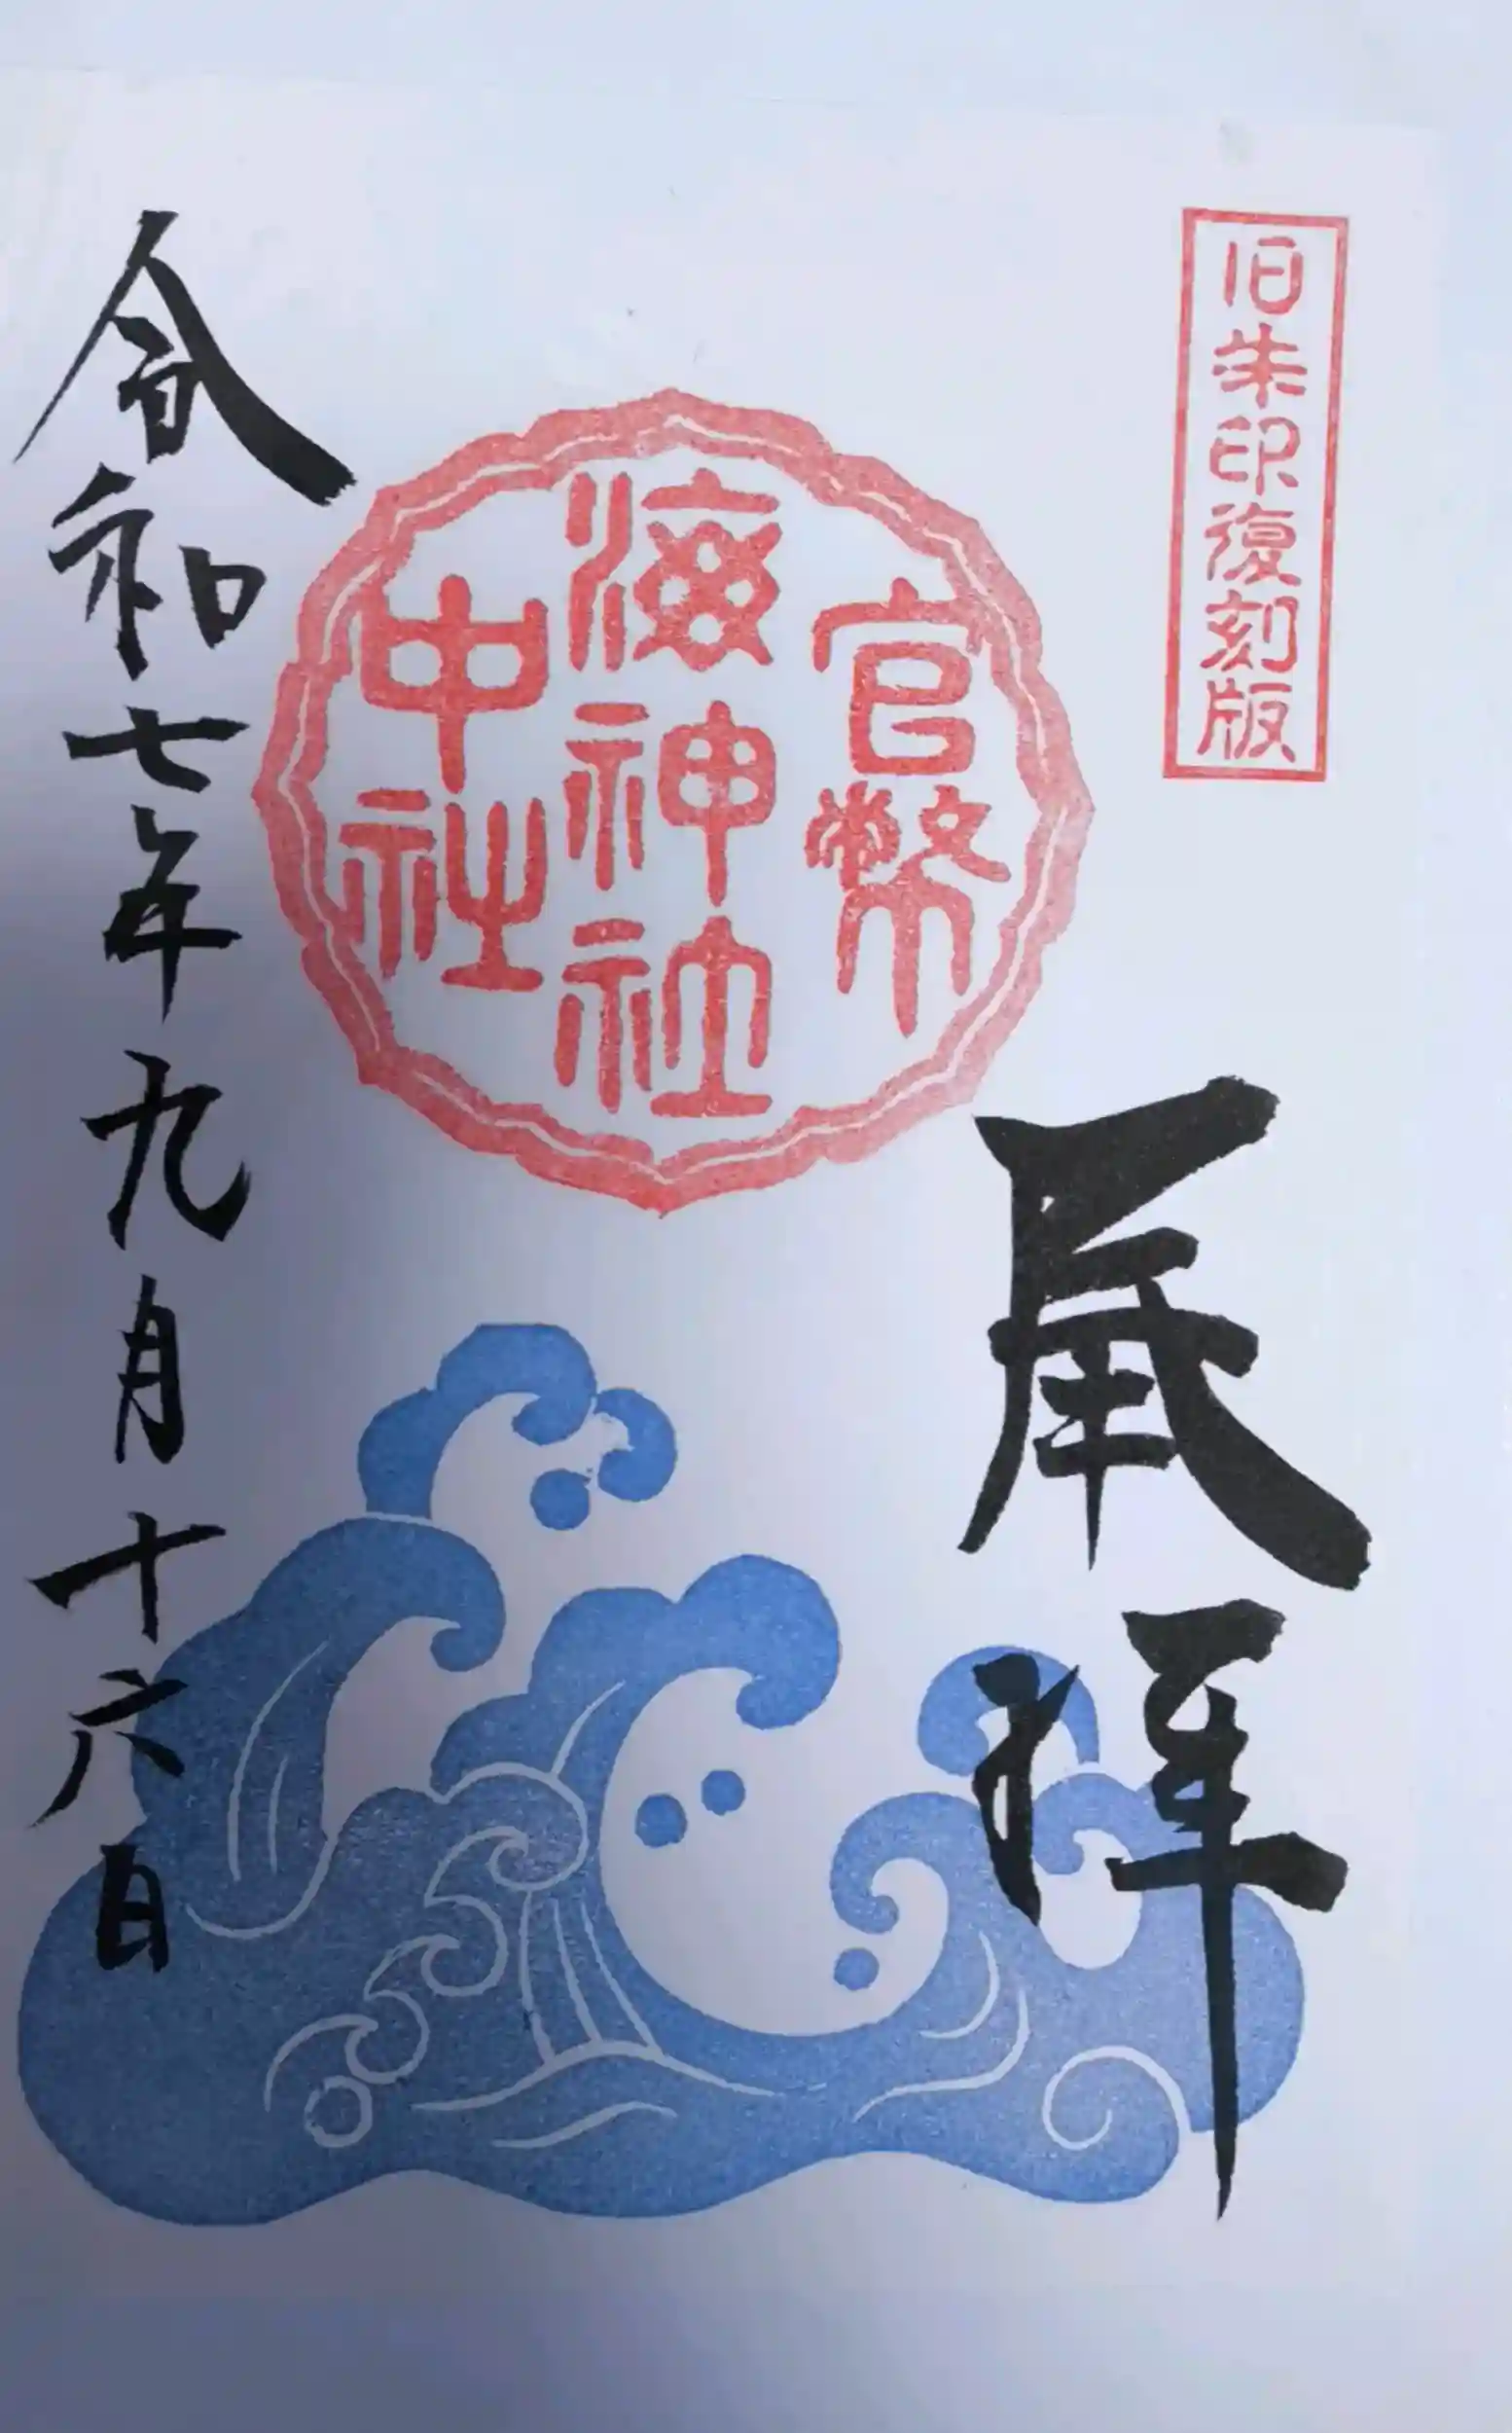 旧朱印復刻版
展拝
官幣
海神社
中社
令和七年九月十六日